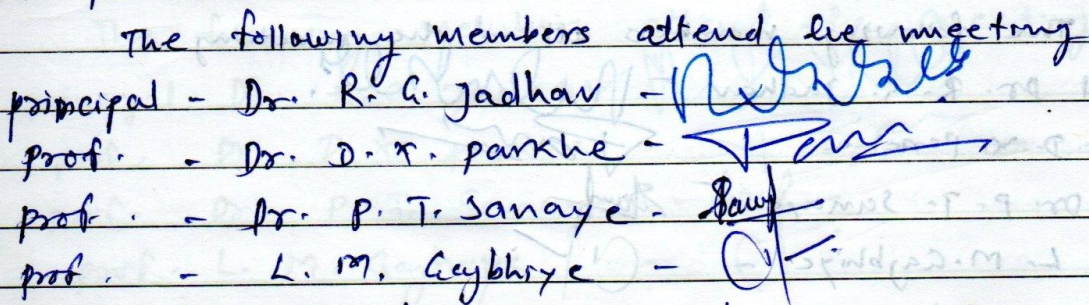 The following members attend the mgeeting
principal - Dr. R. G. Jadhav -
prof. - Dr. D. X. parkhe -
prof. - Dr. P. T. Sanaye -
prof. - L. M. Gaybhiye -